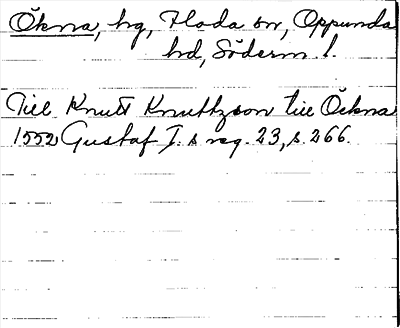 Ökna, hg, Floda sn, Oppunda
hd, Söderm. l.
Till Knutt Knuttzson till Öckna
1552 Gustaf I. s reg. 23, s. 266.